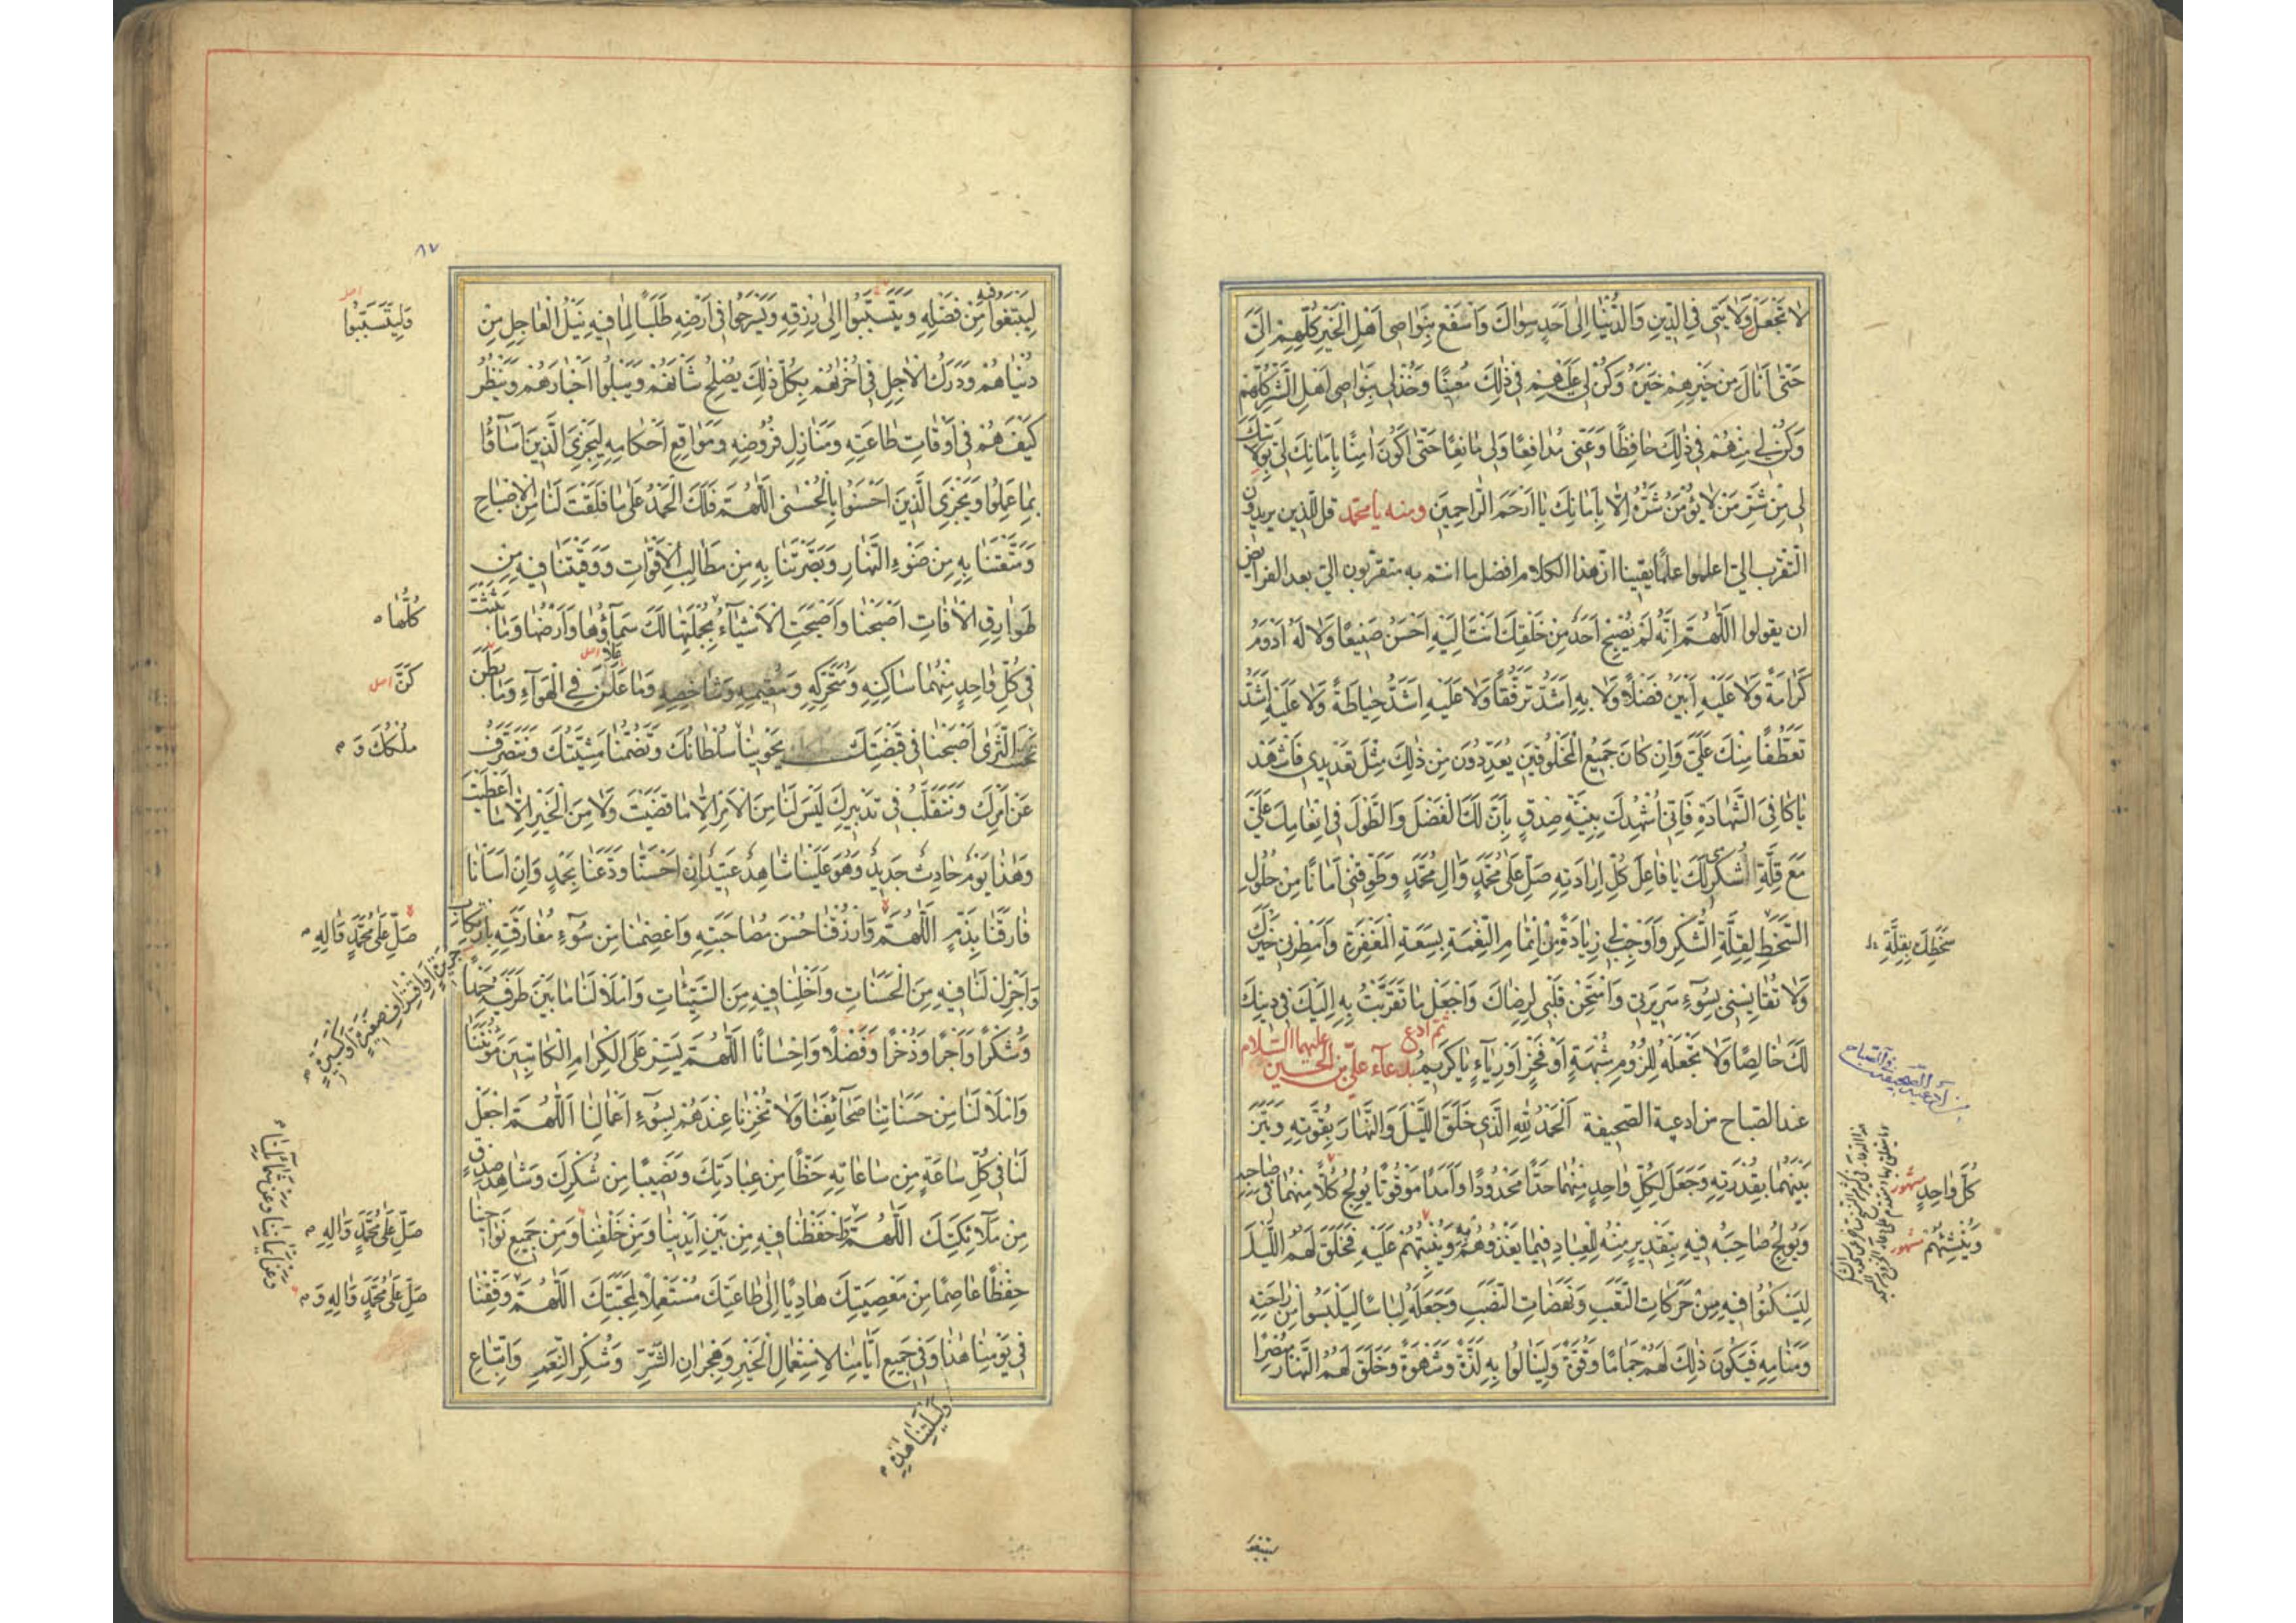 لا تَجْعَلْ وَلايَتي فِي الدّينِ وَالدُّنْيا اِلى اَحَدٍ سِواكَ وَاسْفَعْ بِنَواصى اَهْلِ الْخَيْرِ كُلِّهِمْ اِلَيَّ
حَتّى اَنالَ مِنْ خَيْرِهِمْ خَيْرَهُ وَكُنْ لي عَلَيْهِمْ في ذلِكَ مُعينًا وَخُذْ لي بِنَواصى اَهْلِ الشَّرِّ كُلِّهِمْ
وَكُنْ لي مِنْهُمْ في ذلِكَ حافِظًا وَعَنّى مُدافِعًا وَلي مانِعًا حَتّى اَكُونَ امِنًا بِاَمانِكَ لي بِوِلايَتِكَ
لي مِنْ شَرِّ مَنْ لا يُؤْمَنُ شَرُّهُ اِلّا بِاَمانِكَ يا اَرْحَمَ الرّاحِمينَ ومنه يا محمّد قل للّذين يريدون
التقرب اليّ اعلموا علمًا يقينا انّ هذا الكلام افضل ما انتم به متقربون اليّ بعد الفرائض
ان يقولوا اَللّهُمَّ اِنَّهُ لَمْ يُصْبِحْ اَحَدٌ مِنْ خَلْقِكَ اَنْتَ اِلَيْهِ اَحْسَنُ صَنيعًا وَلا لَهُ اَدْوَمُ
كَرامَةً وَلا عَلَيْهِ اَبْيَنُ فَضْلًا وَلا بِهِ اَشَدُّ تَرَفُّقًا وَلا عَلَيْهِ اَشَدُّ حِياطَةً وَلا عَلَيْهِ اَشَدُّ
تَعَطُّفًا مِنْكَ عَلَيَّ وَاِنْ كانَ جَميعُ الْمَخْلُوقينَ يُعَدِّدُونَ مِنْ ذلِكَ مِثْلَ تَعْديدي فَاشْهَدْ
يا كافِيَ الشَّهادَةِ فَاِنّي اُشْهِدُكَ بِنِيَّةِ صِدْقٍ بِاَنَّ لَكَ الْفَضْلَ وَالطَّوْلَ في اِنْعامِكَ عَلَيَّ
مَعَ قِلَّةِ شُكْرِي لَكَ يا فاعِلَ كُلِّ اِرادَتِهِ صَلِّ عَلى مُحَمَّدٍ وَالِ مُحَمَّدٍ وَطَوِّقْني اَمانًا مِنْ حُلُولِ
السَّخَطِ لِقِلَّةِ الشُّكْرِ وَاَوْجِبْ لي زِيادَةً مِنْ اِتْمامِ النِّعْمَةِ بِسَعَةِ الْمَغْفِرَةِ وَاَمْطِرْني خَيْرَكَ
سَخَطِكَ بِقِلَّةِ
وَلا تُقايِسْني بِسُوءِ سَريرَتي وَامْتَحِنْ قَلْبي لِرِضاكَ وَاجْعَلْ ما تَقَرَّبْتُ بِهِ اِلَيْكَ في دينِكَ
لَكَ خالِصًا وَلا تَجْعَلْهُ لِلُزُومِ شُبْهَةٍ اَوْ فَخْرٍ اَوْ رِياءٍ يا كَريمُ ثم ادع بدعاء علي بن الحسين عليهما السلام
عند الصّباح من ادعية الصّحيفة اَلْحَمْدُ لِلّهِ الَّذي خَلَقَ اللَّيْلَ وَالنَّهارَ بِقُوَّتِهِ وَمَيَّزَ
بَيْنَهُما بِقُدْرَتِهِ وَجَعَلَ لِكُلِّ واحِدٍ مِنْهُما حَدًّا مَحْدُودًا وَاَمَدًا مَوْقُوتًا يُولِجُ كُلًّا مِنْهُما في صاحِبِهِ
كُلَّ واحِدٍ مشهور
وَيُولِجُ صاحِبَهُ فيهِ بِتَقْديرٍ مِنْهُ لِلْعِبادِ فيما يَغْذُوهُمْ بِهِ وَيُنْبِتُهُمْ عَلَيْهِ فَخَلَقَ لَهُمُ اللَّيْلَ
وَيُنْشِئُهُمْ مشهور
لِيَسْكُنُوا فيهِ مِنْ حَرَكاتِ التَّعَبِ وَنَهَضاتِ النَّصَبِ وَجَعَلَهُ لِباسًا لِيَلْبَسُوا مِنْ راحَتِهِ
وَمَنامِهِ فَيَكُونَ ذلِكَ لَهُمْ جَمامًا وَقُوَّةً وَلِيَنالُوا بِهِ لَذَّةً وَشَهْوَةً وَخَلَقَ لَهُمُ النَّهارَ مُبْصِرًا
ليبتغوا
٨٧
لِيَبْتَغُوا فيهِ مِنْ فَضْلِهِ وَيَتَسَبَّبُوا اِلى رِزْقِهِ وَيَسْرَحُوا في اَرْضِهِ طَلَبًا لِما فيهِ نَيْلُ الْعاجِلِ مِنْ
وَلِيَتَسَبَّبُوا اصل
دُنْياهُمْ وَدَرَكُ الْاجِلِ في اُخْراهُمْ بِكُلِّ ذلِكَ يُصْلِحُ شَأْنَهُمْ وَيَبْلُوا اَخْبارَهُمْ وَيَنْظُرُ
كَيْفَ هُمْ في اَوْقاتِ طاعَتِهِ وَمَنازِلِ فُرُوضِهِ وَمَواقِعِ اَحْكامِهِ لِيَجْزِيَ الَّذينَ اَساؤُا
بِما عَمِلُوا وَيَجْزِيَ الَّذينَ اَحْسَنُوا بِالْحُسْنى اَللّهُمَّ فَلَكَ الْحَمْدُ عَلى ما فَلَقْتَ لَنا مِنَ الْاِصْباحِ
وَمَتَّعْتَنا بِهِ مِنْ ضَوْءِ النَّهارِ وَبَصَّرْتَنا بِهِ مِنْ مَطالِبِ الْاَقْواتِ وَوَقَيْتَنا فيهِ مِنْ
طَوارِقِ الْافاتِ اَصْبَحْنا وَاَصْبَحَتِ الْاَشْياءُ بِجُمْلَتِها لَكَ سَماؤُها وَاَرْضُها وَما بَثَثْتَ
كُلُّها
في كُلِّ واحِدٍ مِنْهُما ساكِنِهِ وَمُتَحَرِّكِهِ وَمُقيمِهِ وَشاخِصِهِ وَما عَلَنَ فِي الْهَواءِ وَما بَطَنَ
علا اصل
كَنَّ اصل
تَحْتَ الثَّرى اَصْبَحْنا في قَبْضَتِكَ يَحْوينا سُلْطانُكَ وَتَضُمُّنا مَشِيَّتُكَ وَنَتَصَرَّفُ
مُلْكُكَ وَ
عَنْ اَمْرِكَ وَنَتَقَلَّبُ في تَدْبيرِكَ لَيْسَ لَنا مِنَ الْاَمْرِ اِلّا ما قَضَيْتَ وَلا مِنَ الْخَيْرِ اِلّا ما اَعْطَيْتَ
وَهذا يَوْمٌ حادِثٌ جَديدٌ وَهُوَ عَلَيْنا شاهِدٌ عَتيدٌ اِنْ اَحْسَنّا وَدَّعَنا بِحَمْدٍ وَاِنْ اَسَأْنا
فارَقَنا بِذَمٍّ اَللّهُمَّ وَارْزُقْنا حُسْنَ مُصاحَبَتِهِ وَاعْصِمْنا مِنْ سُوءِ مُفارَقَتِهِ بِارْتِكابِ
صَلِّ عَلى مُحَمَّدٍ وَالِهِ
جَريرَةٍ اَوِ اقْتِرافِ صَغيرَةٍ اَوْ كَبيرَةٍ
وَاَجْزِلْ لَنا فيهِ مِنَ الْحَسَناتِ وَاَخْلِنا فيهِ مِنَ السَّيِّئاتِ وَامْلَأْ لَنا ما بَيْنَ طَرَفَيْهِ حَمْدًا
وَشُكْرًا وَاَجْرًا وَذُخْرًا وَفَضْلًا وَاِحْسانًا اَللّهُمَّ يَسِّرْ عَلَى الْكِرامِ الْكاتِبينَ مَؤُنَتَنا
وَامْلَأْ لَنا مِنْ حَسَناتِنا صَحائِفَنا وَلا تُخْزِنا عِنْدَهُمْ بِسُوءِ اَعْمالِنا اَللّهُمَّ اجْعَلْ
لَنا في كُلِّ ساعَةٍ مِنْ ساعاتِهِ حَظًّا مِنْ عِبادَتِكَ وَنَصيبًا مِنْ شُكْرِكَ وَشاهِدَ صِدْقٍ
مِنْ مَلائِكَتِكَ اَللّهُمَّ وَاحْفَظْنا فيهِ مِنْ بَيْنِ اَيْدينا وَمِنْ خَلْفِنا وَمِنْ جَميعِ نَواحينا
صَلِّ عَلى مُحَمَّدٍ وَالِهِ
وَعَنْ اَيْمانِنا وَعَنْ شَمائِلِنا
حِفْظًا عاصِمًا مِنْ مَعْصِيَتِكَ هادِيًا اِلى طاعَتِكَ مُسْتَعْمِلًا لِمَحَبَّتِكَ اَللّهُمَّ وَفِّقْنا
صَلِّ عَلى مُحَمَّدٍ وَالِهِ وَ
في يَوْمِنا هذا وَفي جَميعِ اَيّامِنا لِاسْتِعْمالِ الْخَيْرِ وَهِجْرانِ الشَّرِّ وَشُكْرِ النِّعَمِ وَاتِّباعِ
وَلَيْلَتِنا هذِهِ